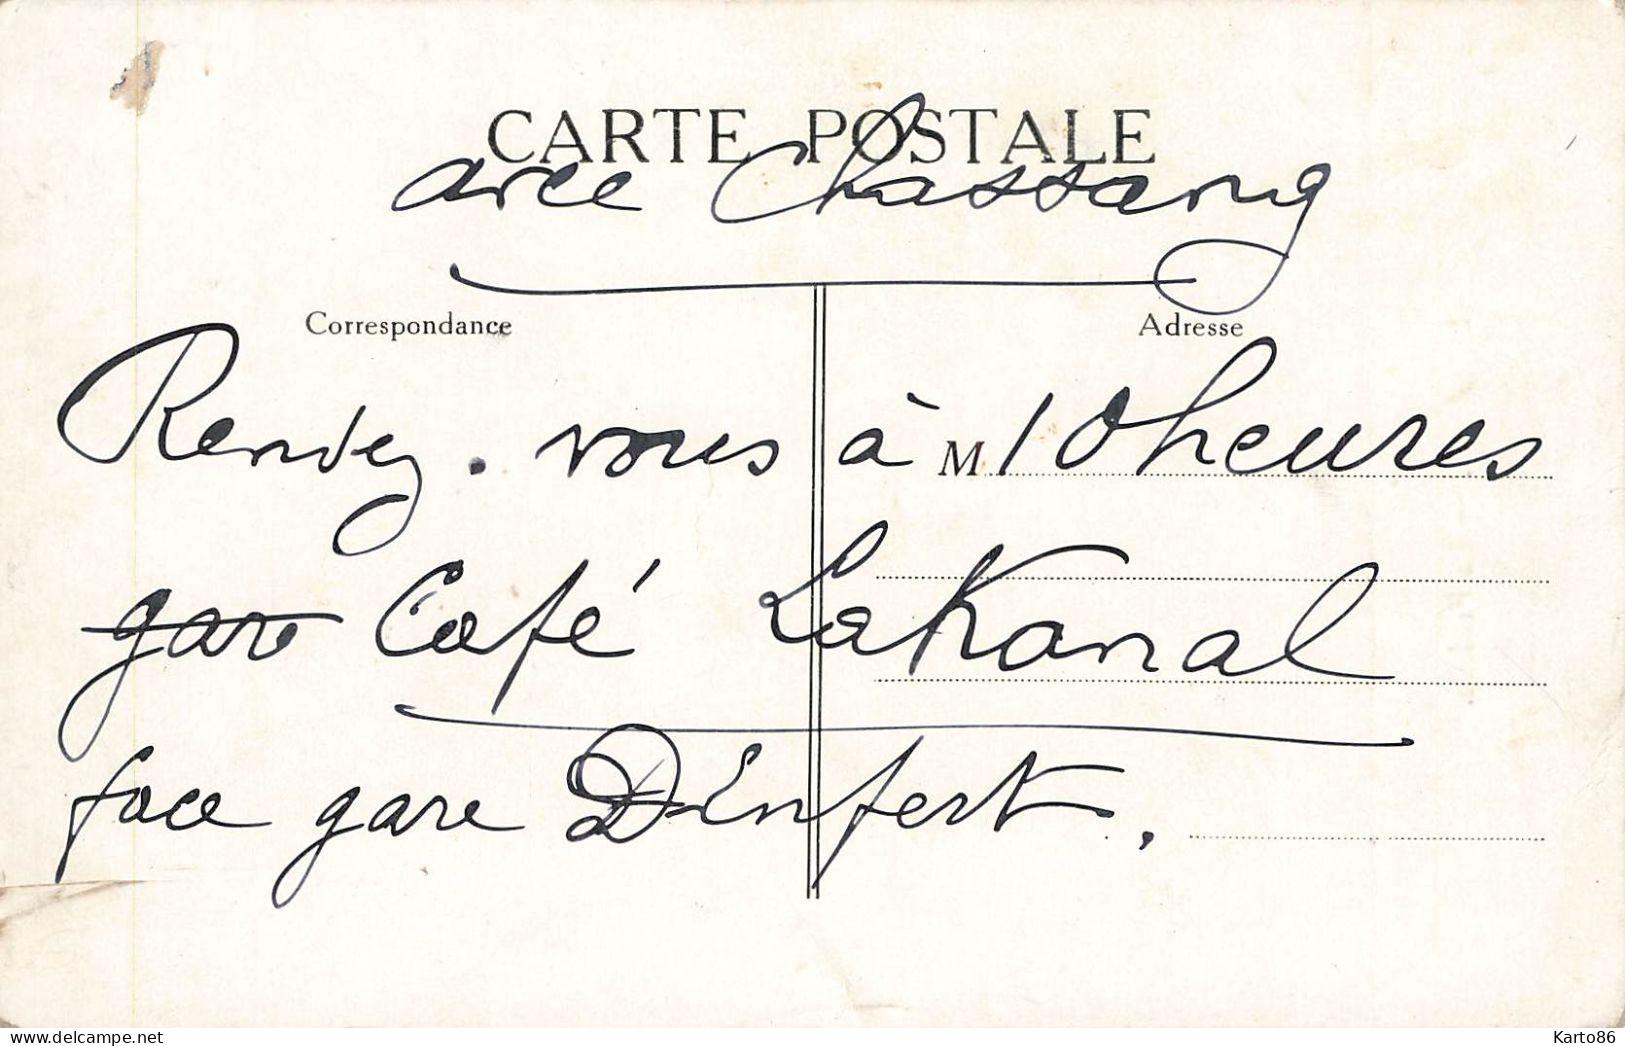 CARTE POSTALE
avec Chassang
Correspondance
Adresse
Rendez-vous à M 10 heures
gare Café Lakanal
face gare Denfert.
www.delcampe.net
Karto86